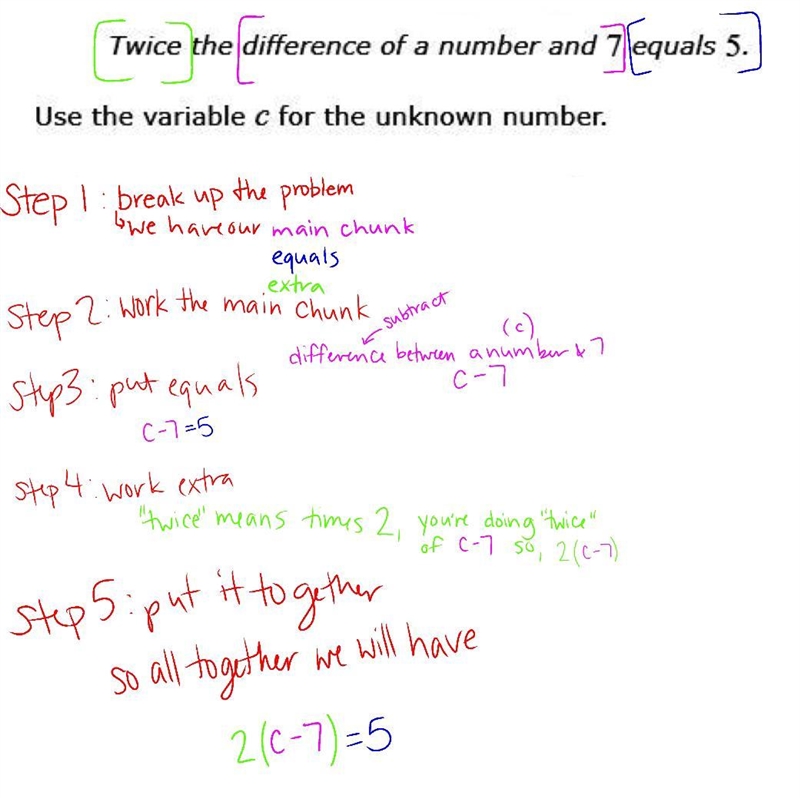 Twice the difference of a number and 7 equals 5.
Use the variable c for the unknown number.
Step 1: break up the problem
↳we have our main chunk
equals
extra
Step 2: work the main chunk
subtract
(c)
difference between a number & 7
c-7
Step 3: put equals
c-7=5
Step 4: work extra
"twice" means times 2, you're doing "twice"
of c-7 so, 2(c-7)
Step 5: put it together
so all together we will have
2(c-7)=5